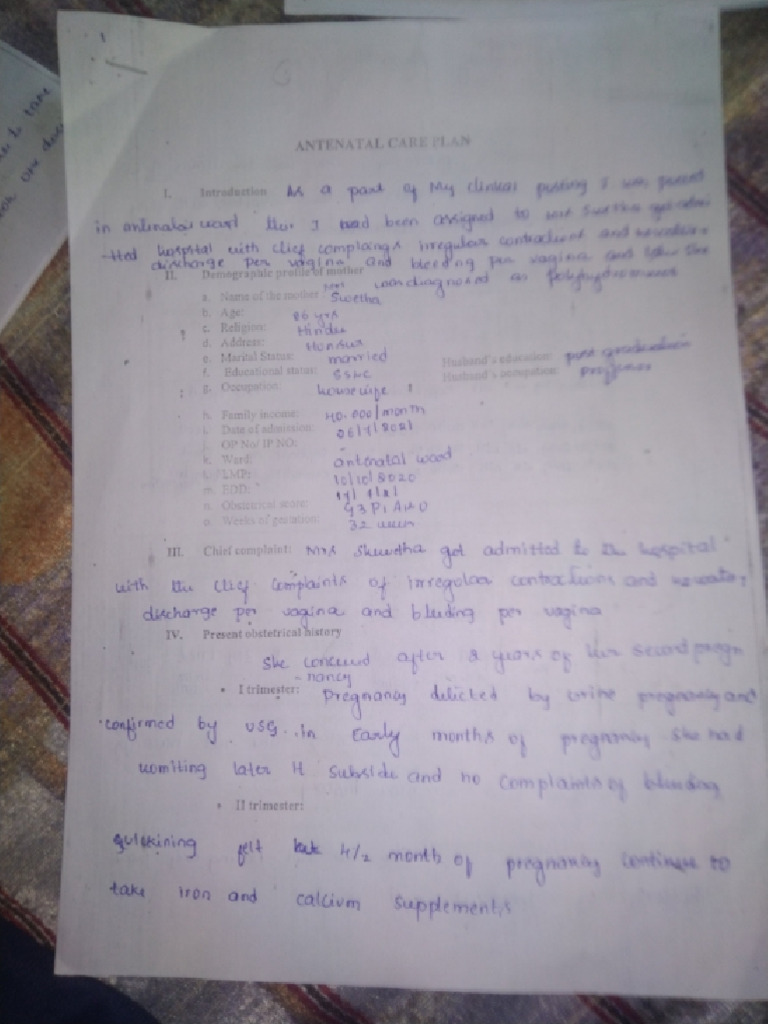 ANTENATAL CARE PLAN
I. Introduction As a part of My clinical posting I was
in antenatal ward I had been assigned to
-tted hospital with chief complaings irregular contractions and
discharge per vagina and bleeding per vagina and
II. Demographic profile of mother was diagnosed as polyhydramnios
a. Name of the mother Mrs Swetha
b. Age: 26 yrs
c. Religion: Hindu
d. Address: Hunsur
e. Marital Status: married Husband's education: post graduation
f. Educational status: SSLC Husband's occupation:
g. Occupation: housewife
h. Family income: 40.000/month
i. Date of admission: 26/7/2021
j. OP No/ IP NO:
k. Ward: antenatal ward
l. LMP: 10/10/2020
m. EDD:
n. Obstetrical score:
o. Weeks of gestation: 32
III. Chief complaint: Mrs got admitted to the hospital
with the chief complaints of irregular contractions and
discharge per vagina and bleeding per vagina
IV. Present obstetrical history
She after 2 years of her second preg
-nancy
• I trimester: Pregnancy by urine pregnancy and
confirmed by USG.. in Early months of pregnancy she had
vomiting later it subside and no complaints of bleeding
• II trimester:
felt 4/2 month of pregnancy continue to
take iron and calcium supplements